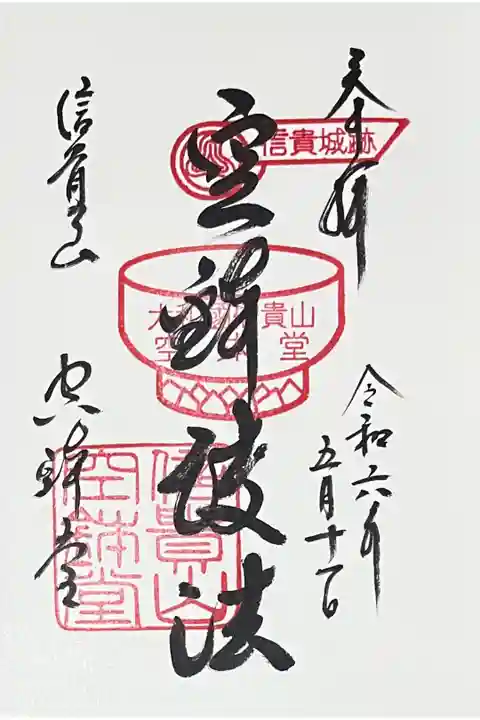 奉拝
令和六年
五月十一日
信貴城跡
空鉢護法
大和國信貴山
空鉢堂
信貴山
空鉢堂
信貴山
空鉢堂